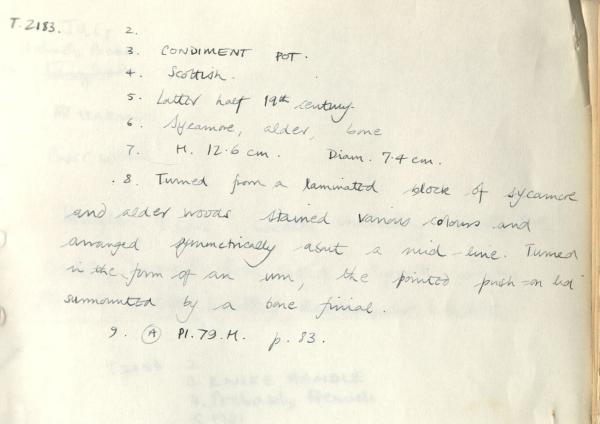 T.2183.
2.
3. CONDIMENT POT.
4. Scottish.
5. Latter half 19th century.
6. Sycamore, alder, bone
7. H. 12.6 cm. Diam. 7.4 cm.
8. Turned from a laminated block of sycamore
and alder woods stained various colours and
arranged symmetrically about a mid-line. Turned
in the form of an urn, the pointed push-on lid
surmounted by a bone finial.
9. (A) Pl. 79. H. p. 83.